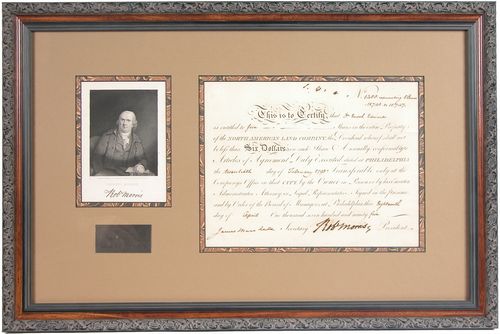 Nº 1500
This is to Certify that
is entitled to five Shares in the entire Property
of the NORTH AMERICAN LAND COMPANY; the Dividend whereof shall not
be less than Six Dollars on each Share Annually, conformably to
Articles of Agreement Duly Executed dated at PHILADELPHIA
the day of February 1795 Transferable only at the
Company's Office in that CITY by the Owner in Person or by his Executor
Administrator Attorney or Legal Representative Signed in the presence
and by Order of the Board of Managers at Philadelphia this Eighteenth
day of April One thousand seven hundred and ninety five
James Marshall Secretary Robt Morris President
Robt Morris